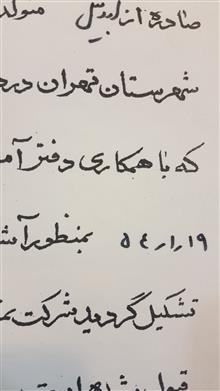 صادره از اردبیل متولد
شهرستان تهران در
که با همکاری دفتر آم
۵۴/۱/۱۹ بمنظور آش
تشکیل گردید شرکت نم